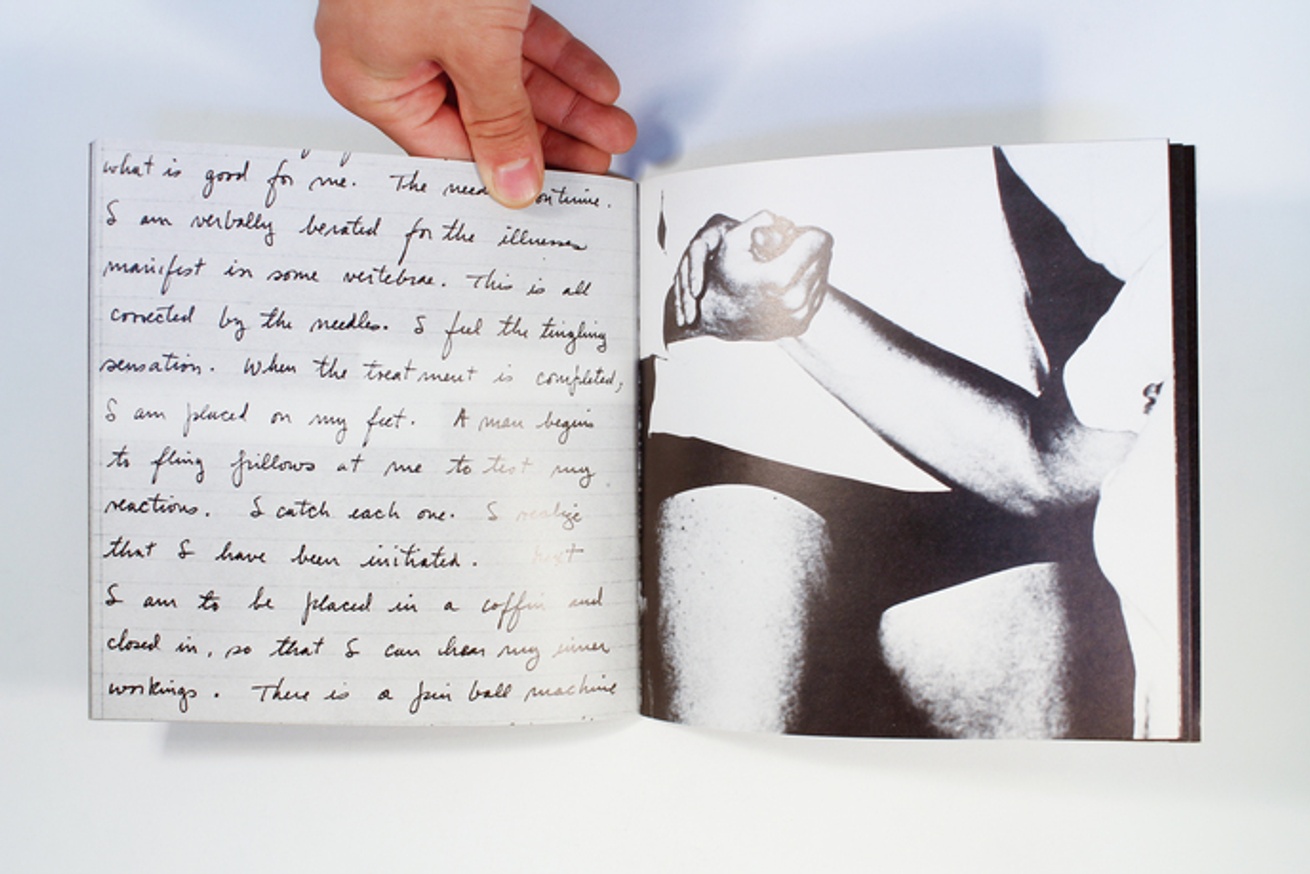 what is good for me. The need ontinue.
I am verbally berated for the illnesses
manifest in some vertebrae. This is all
corrected by the needles. I feel the tingling
sensation. When the treatment is completed,
I am placed on my feet. A man begins
to fling pillows at me to test my
reactions. I catch each one. I realize
that I have been initiated. Next
I am to be placed in a coffin and
closed in, so that I can hear my inner
workings. There is a pin ball machine